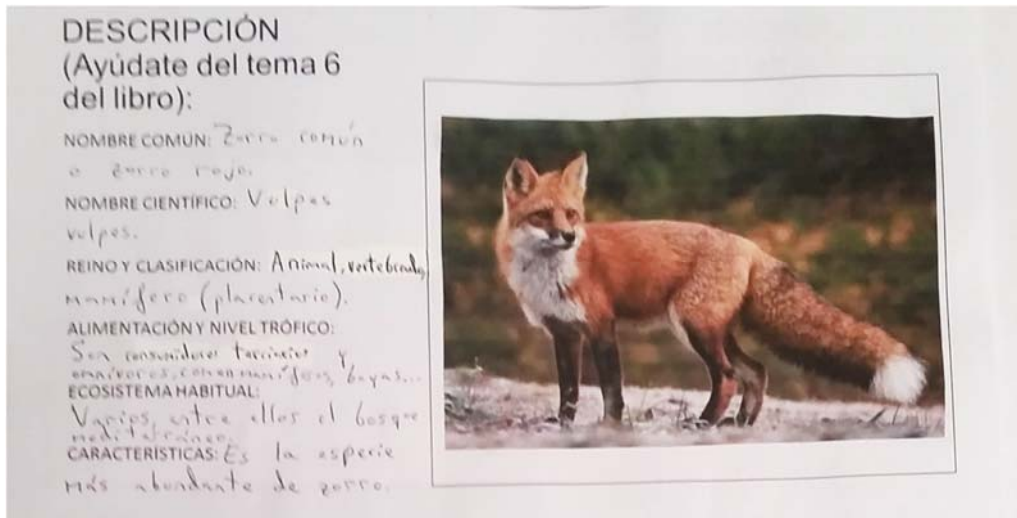 DESCRIPCIÓN
(Ayúdate del tema 6
del libro):
NOMBRE COMÚN: Zorro común
o zorro rojo.
NOMBRE CIENTÍFICO: Vulpes
vulpes.
REINO Y CLASIFICACIÓN: Animal, vertebrado,
mamífero (placentario).
ALIMENTACIÓN Y NIVEL TRÓFICO:
Son consumidores terciarios y
omnívoros, comen mamíferos, bayas...
ECOSISTEMA HABITUAL:
Varios, entre ellos el bosque
mediterráneo.
CARACTERÍSTICAS: Es la especie
más abundante de zorro.